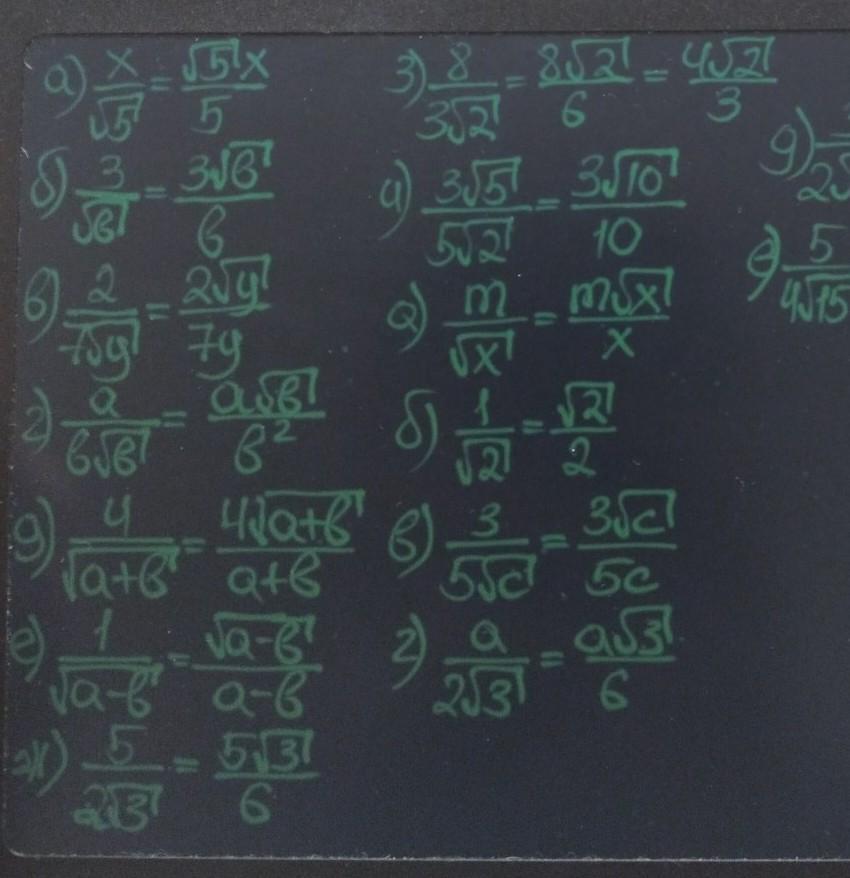 а) x/√5 = √5x/5
б) 3/√6 = 3√6/6
в) 2/7√y = 2√y/7y
г) a/b√b = a√b/b²
д) 4/√a+b = 4√a+b/a+b
е) 1/√a-b = √a-b/a-b
ж) 5/2√3 = 5√3/6
з) 8/3√2 = 8√2/6 = 4√2/3
и) 3√5/5√2 = 3√10/10
а) m/√x = m√x/x
б) 1/√2 = √2/2
в) 3/5√c = 3√c/5c
г) a/2√3 = a√3/6
д)
е) 5/4√15